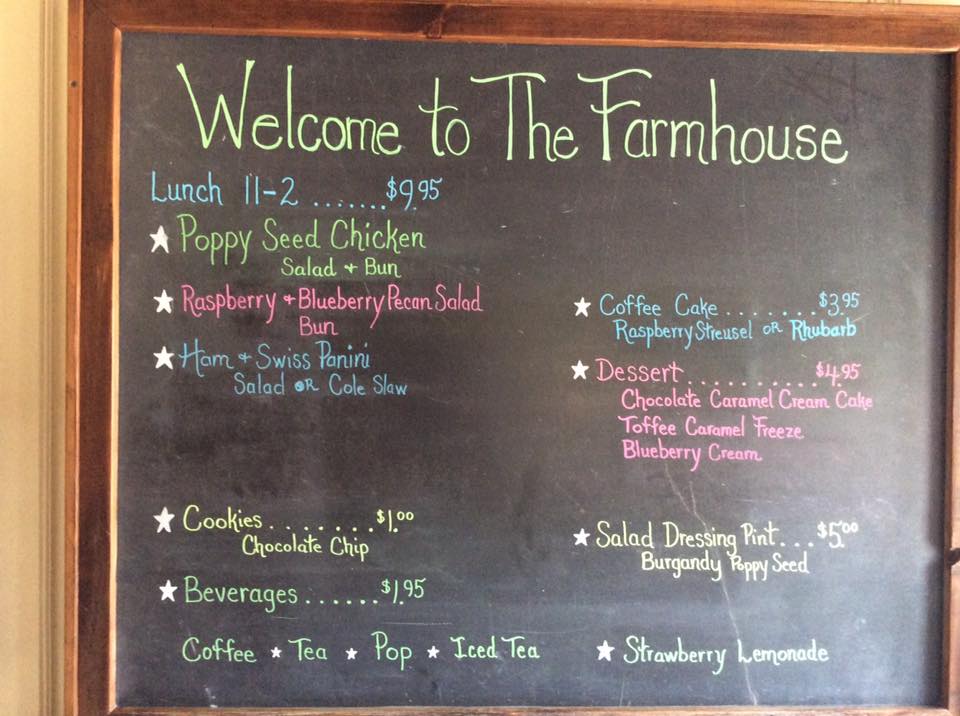 Welcome to The Farmhouse
Lunch 11-2 .......$9.95
★ Poppy Seed Chicken
Salad + Bun
★ Raspberry + Blueberry Pecan Salad
Bun
★ Ham + Swiss Panini
Salad OR Cole Slaw
★ Coffee Cake ........$3.95
Raspberry Streusel OR Rhubarb
★ Dessert ...........$4.95
Chocolate Caramel Cream Cake
Toffee Caramel Freeze
Blueberry Cream
★ Cookies .......$1.00
Chocolate Chip
★ Beverages ......$1.95
Coffee ★ Tea ★ Pop ★ Iced Tea
★ Salad Dressing Pint...$5.00
Burgandy Poppy Seed
★ Strawberry Lemonade